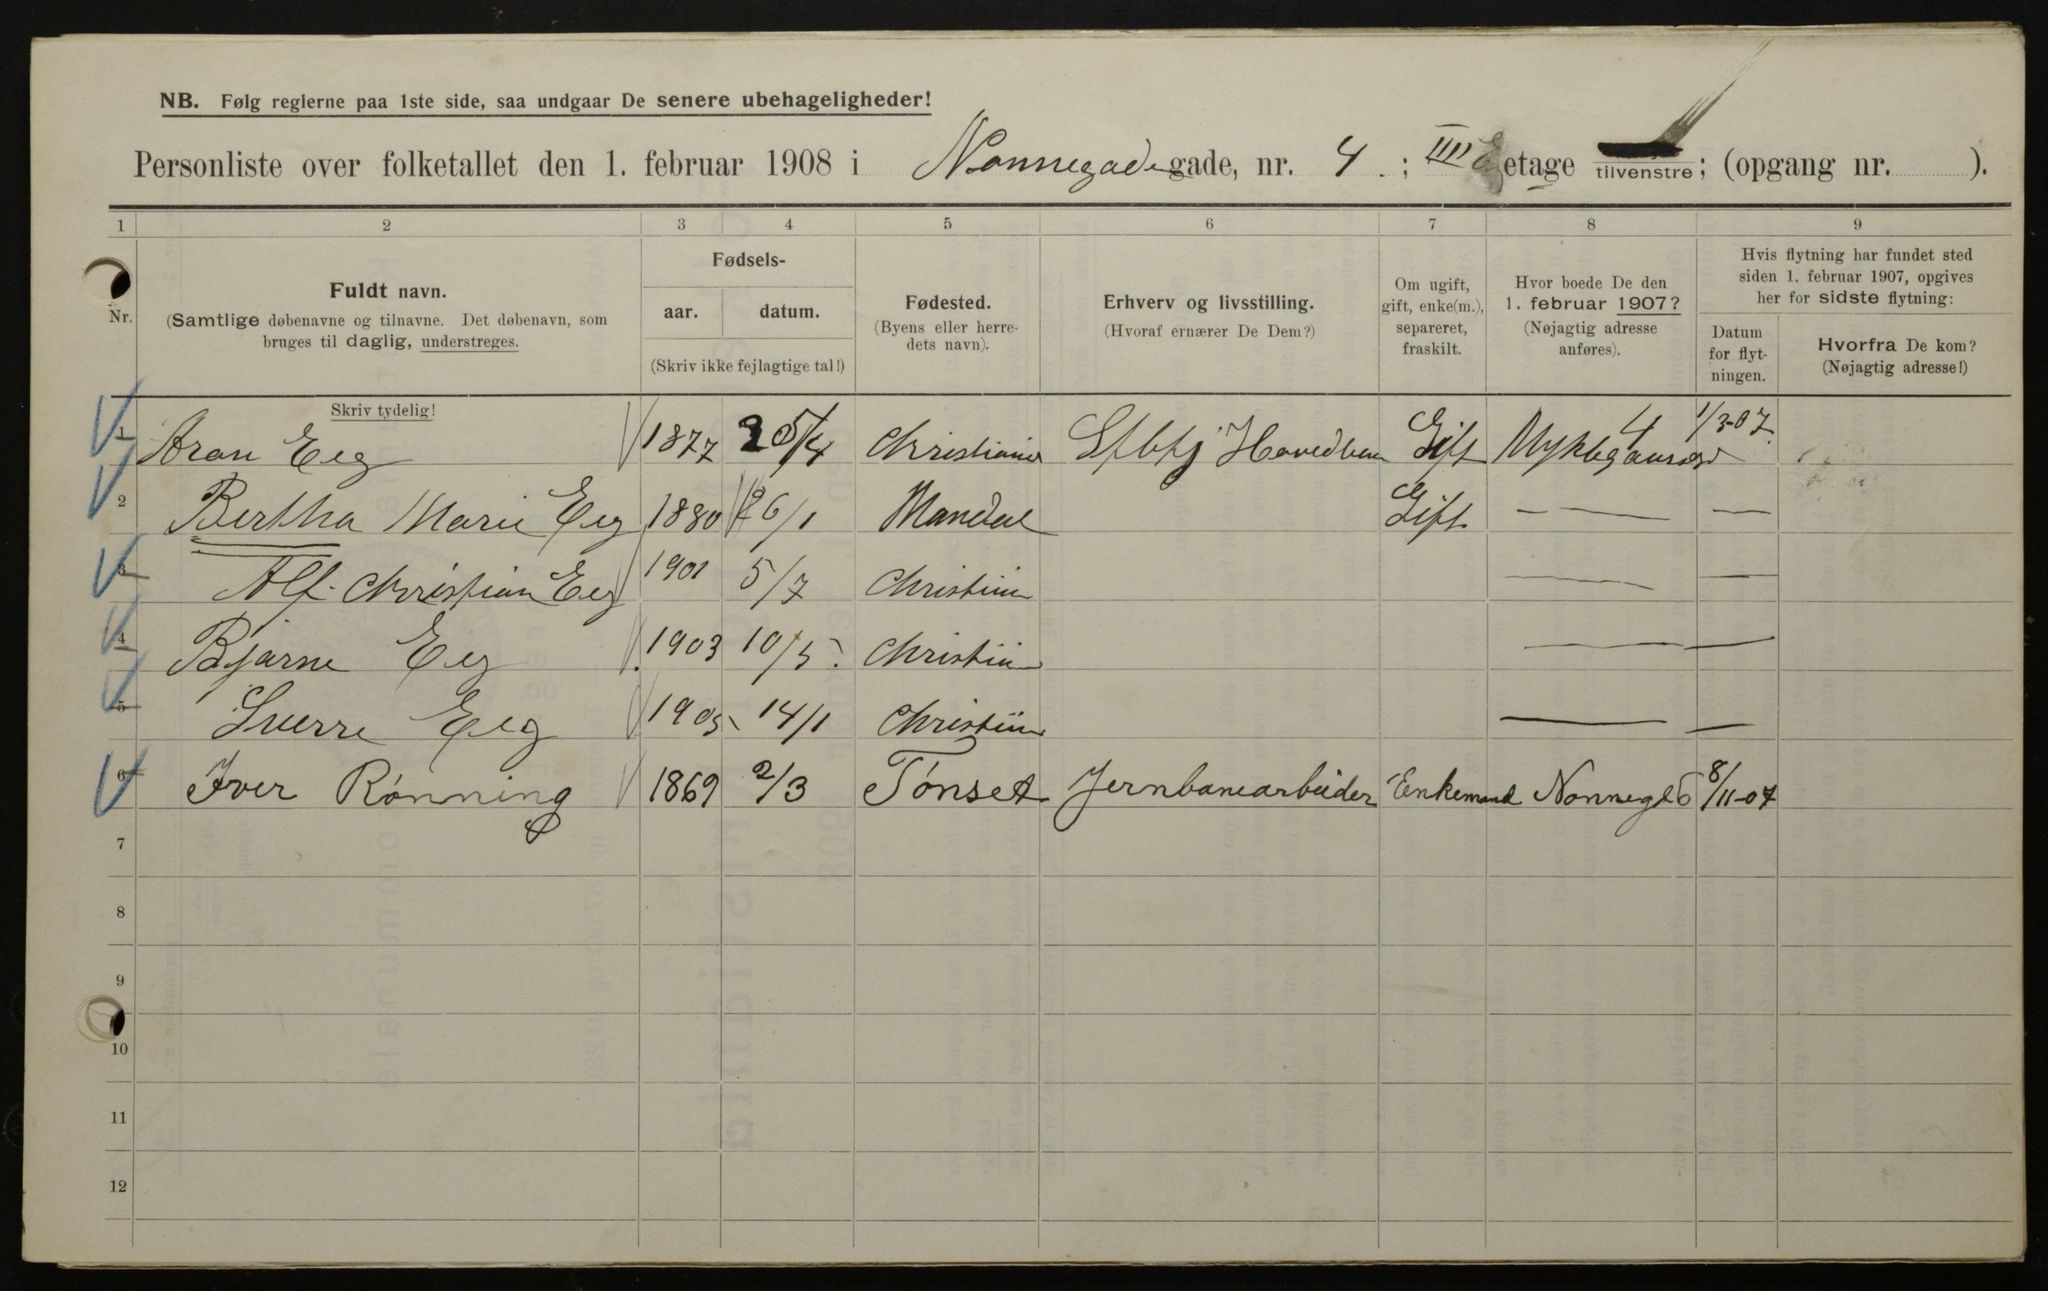 NB. Følg reglerne paa 1ste side, saa undgaar De senere ubehageligheder!
Personliste over folketallet den 1. februar 1908 i Nonnegade gade, nr. 4 . ; IIII etage tilvenstre; (opgang nr. ).
1 2 3 4 5 6 7 8 9
Nr.
Fuldt navn.
(Samtlige døbenavne og tilnavne. Det døbenavn, som
bruges til daglig, understreges.
Fødsels-
aar.
datum.
(Skriv ikke fejlagtige tal!)
Fødested.
(Byens eller herre-
dets navn).
Erhverv og livsstilling.
(Hvoraf ernærer De Dem?)
Om ugift,
gift, enke(m.),
separeret,
fraskilt.
Hvor boede De den
1. februar 1907?
(Nøjagtig adresse
anføres).
Hvis flytning har fundet sted
siden 1. februar 1907, opgives
her for sidste flytning:
Datum
for flyt-
ningen.
Hvorfra De kom?
(Nøjagtig adresse!)
Skriv tydelig!
1 Aron Eeg 1877 25/4 Christiania Gift 4 1/3-07.
2 Bertha Marie Eeg 1880 26/1 Mandal Gift — — —
3 Alf. Christian Eeg 1901 5/7 Christiin — —
4 Bjarne Eeg 1903 10/5. Christiin — —
5 Sverre Eeg 1905 14/1 Christiin — —
6 Iver Rønning 1869 2/3 Tønset Jernbanearbeider Enkemand Nonnegd 6 8/11-07
7
8
9
10
11
12